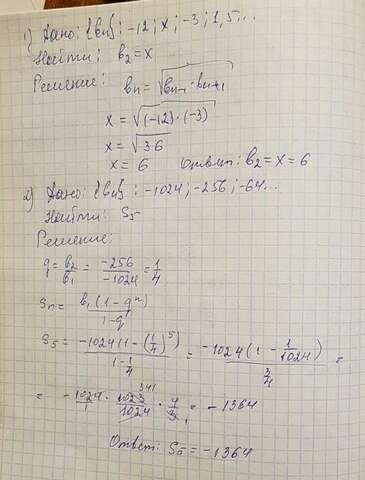 1) Дано: {bn}: -12; x; -3; 1,5...
Найти: b₂ = x
Решение:
bn = √(bn-1 · bn+1)
x = √((-12)·(-3))
x = √36
x = 6 Ответ: b₂ = x = 6
2) Дано: {bn}: -1024; -256; -64...
Найти: S₅
Решение:
q = b₂/b₁ = -256/-1024 = 1/4
Sn = b₁(1-qⁿ)/1-q
S₅ = -1024(1-(1/4)⁵)/1-1/4 = -1024(1-1/1024)/3/4 =
= -1024/1 · 1023 341/1024 · 4/3 1 = -1364
Ответ: S₅ = -1364